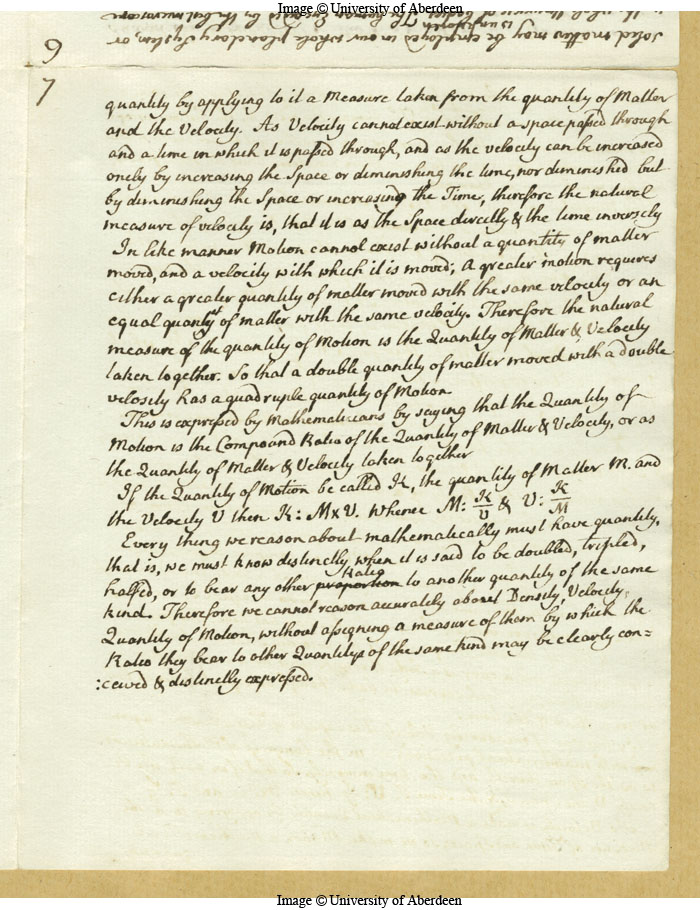 Image © University of Aberdeen
solid matter may be employed in our whole planetary System, or
6
7
quantity by applying to it a Measure taken from the quantity of Matter
and the Velocity. As Velocity cannot exist without a space passed through
and a time in which it is passed through, and as the velocity can be increased
onely by increasing the Space or diminishing the time, nor diminished but
by diminishing the Space or increasing the Time, therefore the natural
measure of velocity is, that it is as the Space directly & the time inversely
In like manner Motion cannot exist without a quantity of matter
moved, and a velocity with which it is moved; A greater motion requires
either a greater quantity of matter moved with the same velocity or an
equal quantity of matter with the same velocity. Therefore the natural
measure of the quantity of Motion is the Quantity of Matter & Velocity
taken together. So that a double quantity of matter moved with a double
velosity has a quadruple quantity of Motion
This is expressed by Mathematicians by saying that the Quantity of
Motion is the Compound Ratio of the Quantity of Matter & Velocity, or as
the Quantity of Matter & Velocity taken together
If the Quantity of Motion be called K, the quantity of Matter M. and
the Velocity V then K: M x V. Whence M: K/V & V: K/M
Every thing we reason about mathematically must have quantity,
that is, we must know distinctly when it is said to be doubled, tripled,
halfed, or to bear any other proportion Ratio to another quantity of the same
kind. Therefore we cannot reason accurately about Density, Velocity,
Quantity of Motion, without assigning a measure of them by which the
Ratio they bear to other Quantitys of the same kind may be clearly con=
:ceived & distinctly expressed.
Image © University of Aberdeen